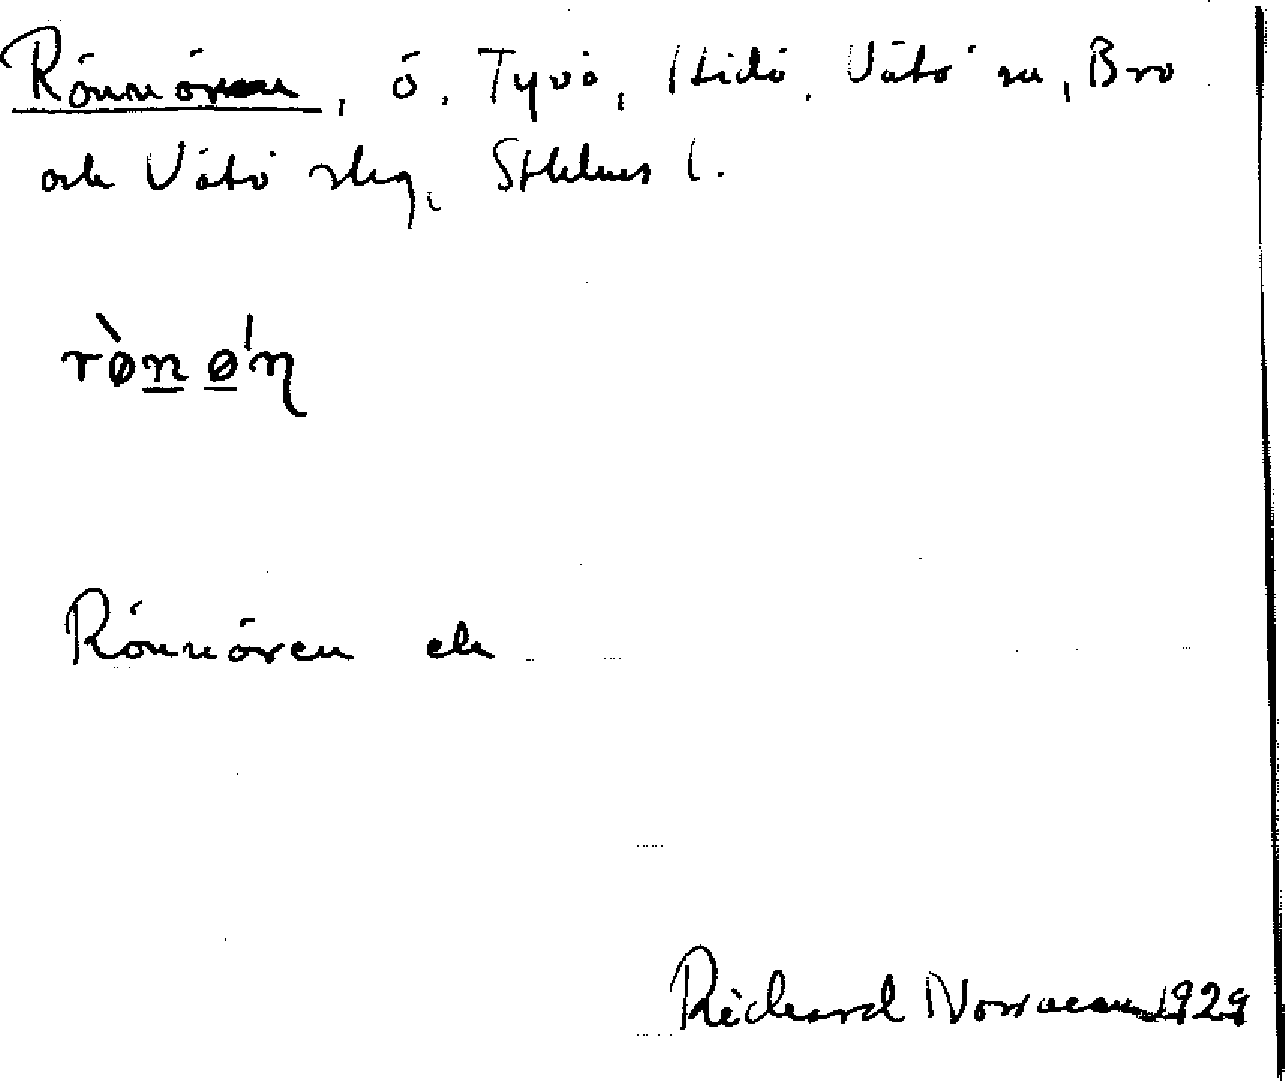 Rönnören, ö, Tyvö, Htidö, Vätö sn, Bro
och Vätö skg, Sthlms l.
rø̀n ø'η
Rönnören ek
Richard Norrman 1929